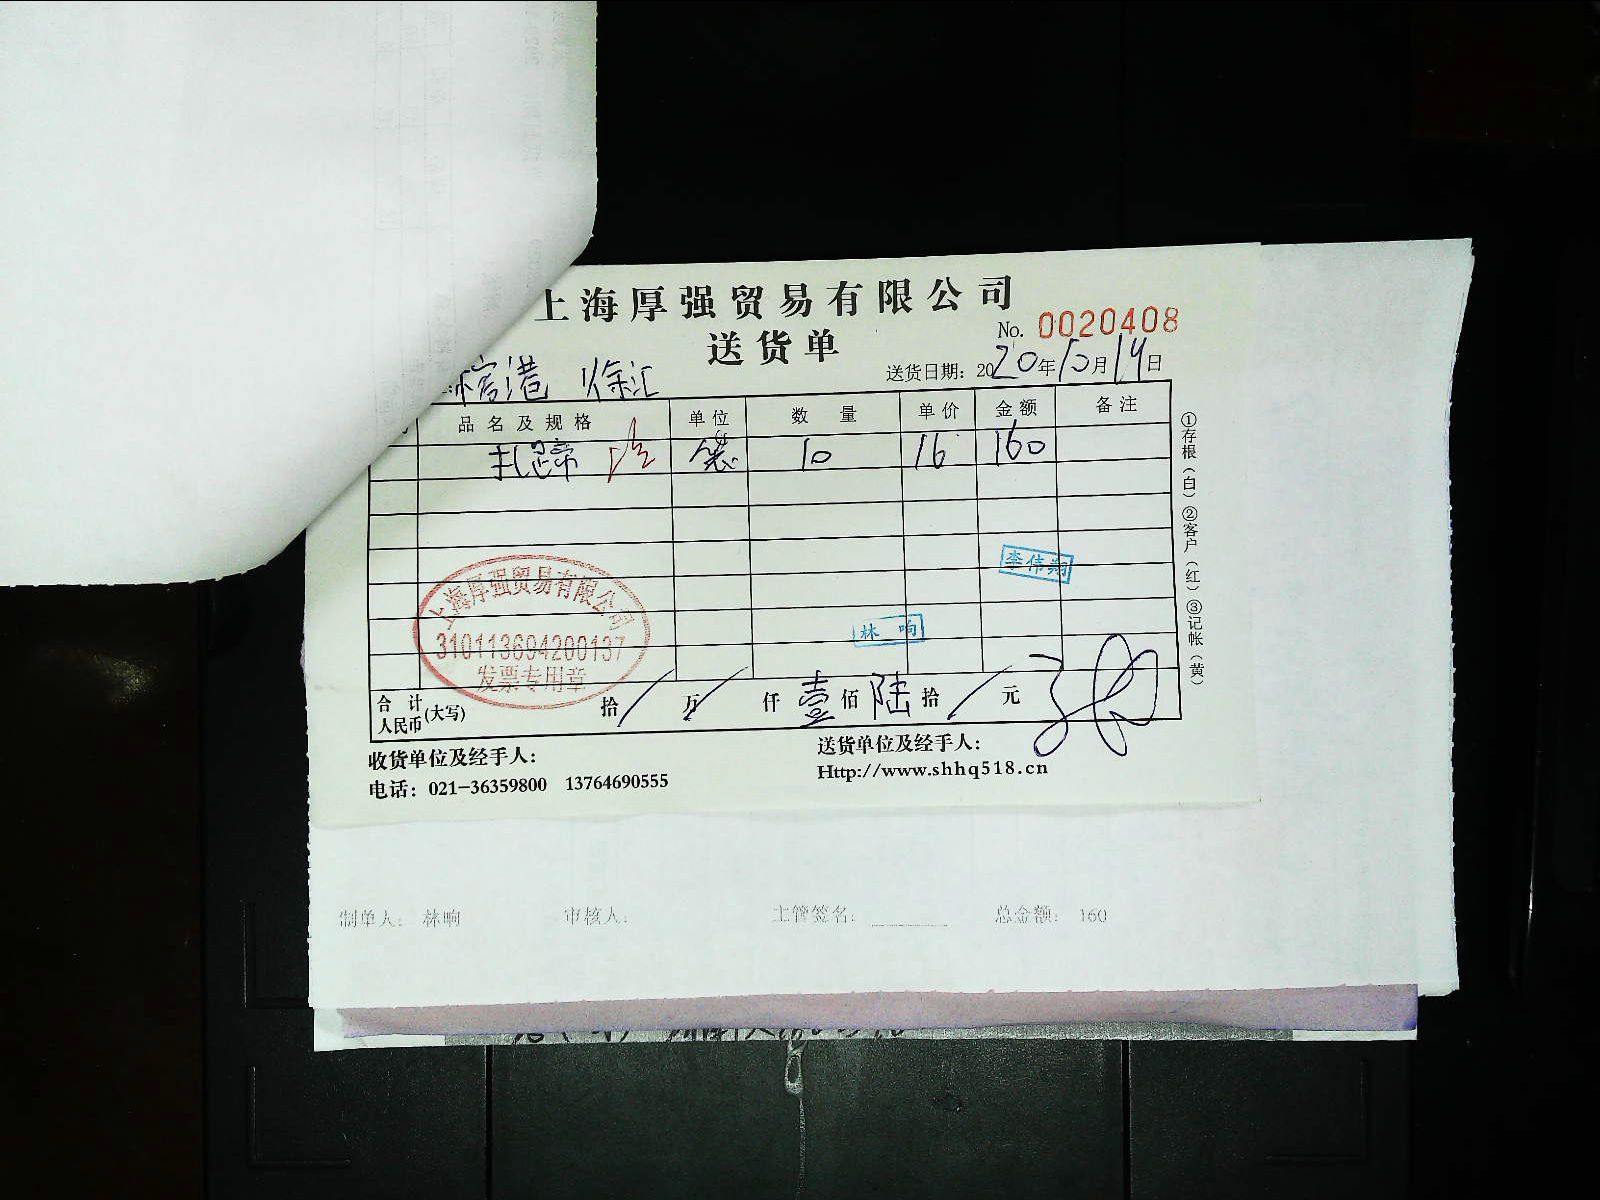 上海厚强贸易有限公司
送货单
No. 0020408
港 徐汇
送货日期: 2020年10月14日
品名及规格 单位 数量 单价 金额 备注
扎蹄 袋 10 16 160
①存根(白)②客户(红)③记帐(黄)
李伟翔
林响
上海厚强贸易有限公司
310113694200137
发票专用章
合计人民币(大写) 拾/万/仟壹佰陆拾/元
收货单位及经手人:
送货单位及经手人:
电话: 021-36359800 13764690555
Http://www.shhq518.cn
制单人: 林响 审核人: 主管签名: 总金额: 160